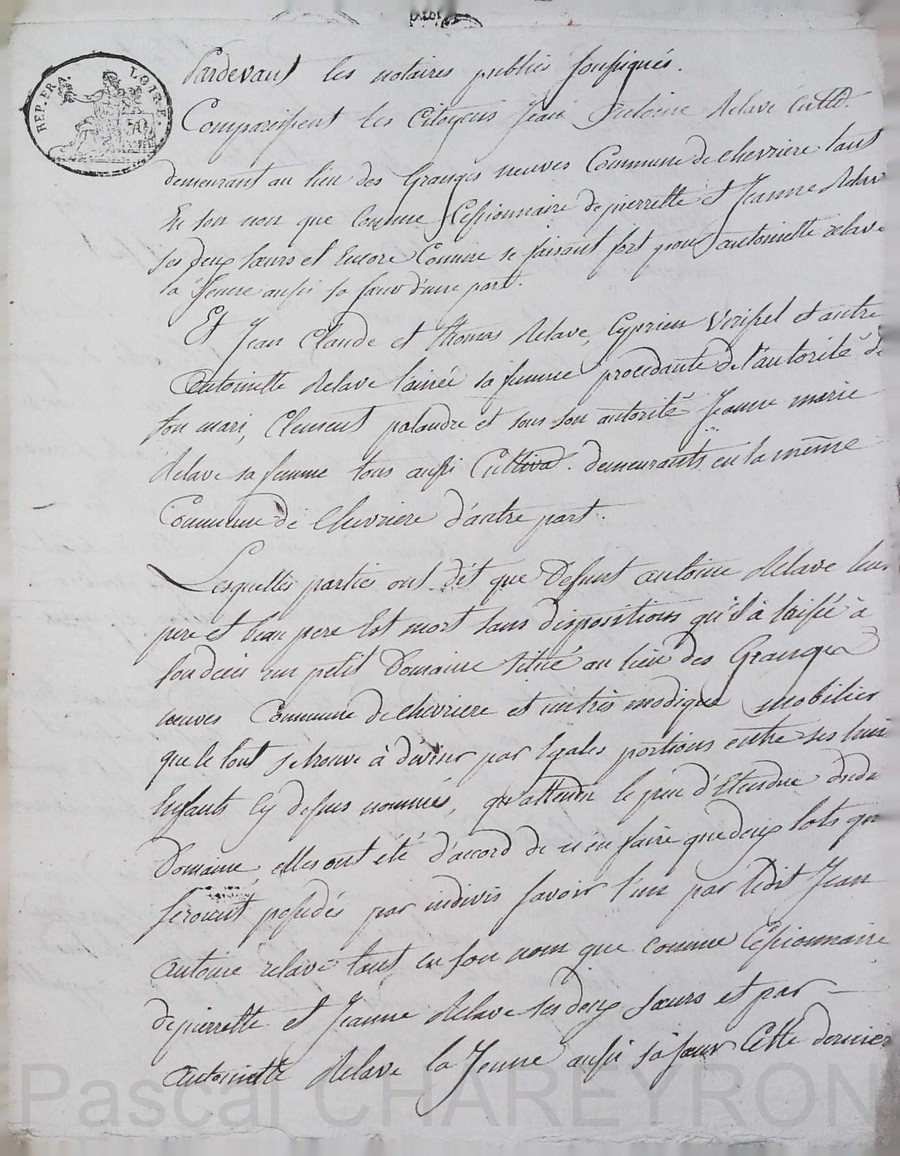 REP. FRA. LOIRE.
50
Pardevant les notaires publics soussignés.
Comparoissent les Citoyens Jean Antoine Relave Cultr.
demeurant au lieu des Granges neuves Commune de chevriere tant
En son nom que Comme Cessionnaire de pierrette et Jeanne Relave
ses deux sœurs et Encore Comme se faisant fort pour antoinette relave
la Jeune aussi sa sœur d'une part.
Et Jean Claude et thomas Relave, Cyprien Virissel et autre
antoinette Relave lainée sa femme procedante de l'autorité de
son mari, Clement palandre et sous son autorité Jeanne marie
Relave sa femme tous aussi Cultiva. demeurants en la même
Commune de Chevriere d'autre part.
Lesquelles parties ont dit que Defunt antoine Relave leur
pere et beau pere Est mort sans dispositions qu'il a laissé à
son deces un petit Domaine situé au lieu des Granges
neuves Commune de chevriere et un tres modique mobilier
que le tout se trouve à diviser par Egales portions entre ses huit
Enfants Cy dessus nommés, qu'attendu le peu d'Etendue dudt
Domaine, elles ont été d'accord de n'en faire que deux lots qui
seroient possedés par indivis savoir l'un par ledit Jean
antoine relave tant en son nom que comme Cessionnaire
de pierrette et Jeanne Relave ses deux sœurs et par
antoinette Relave la Jeune aussi sa sœur Cette derniere
Pascal CHAREYRON